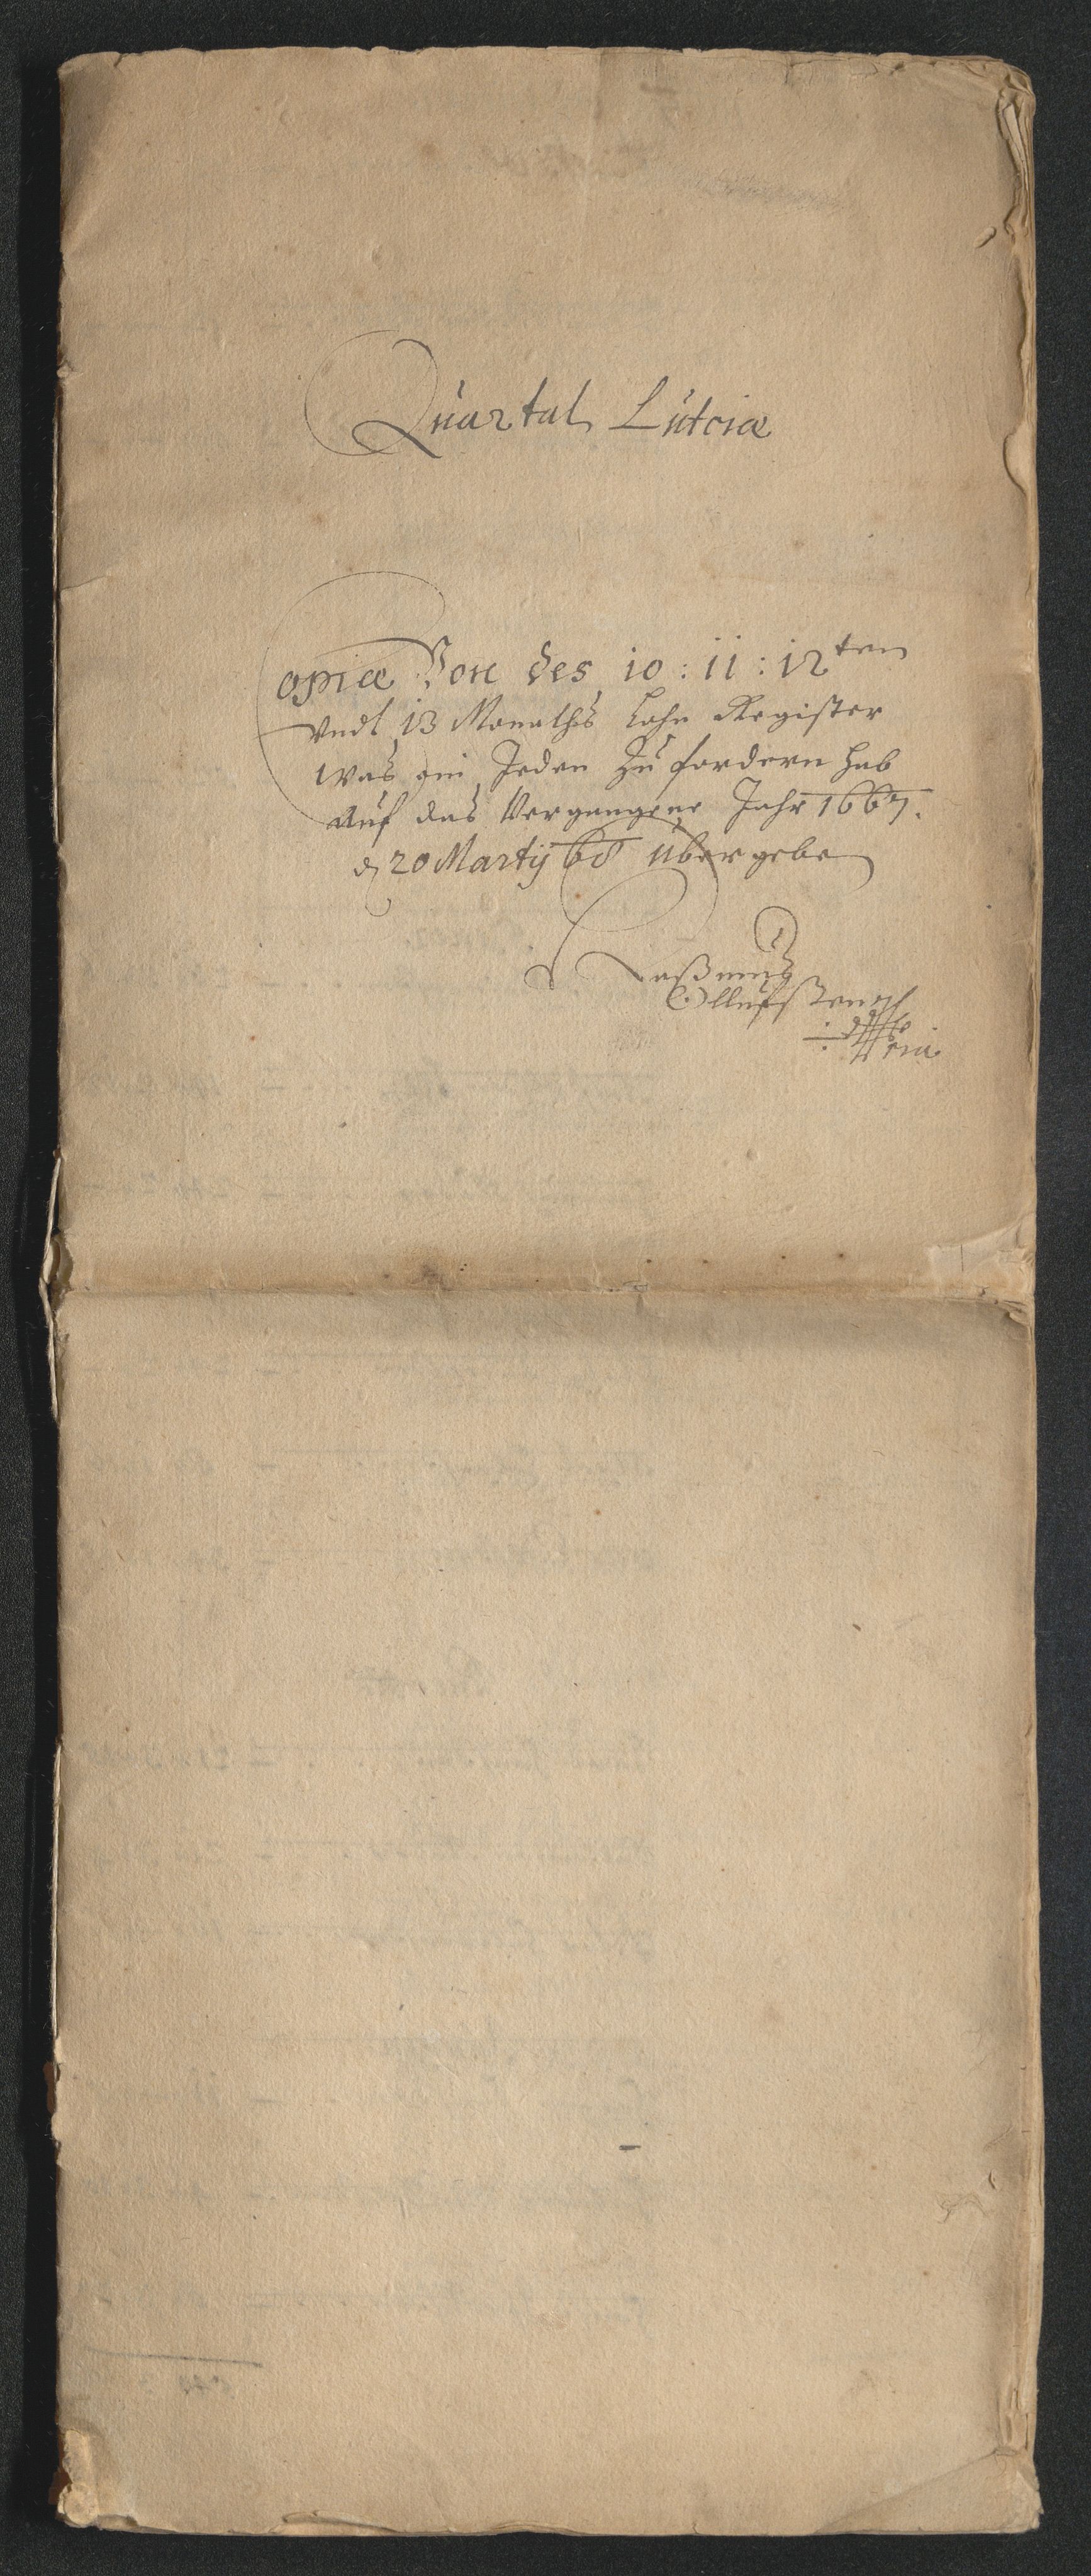 Quartal Lutciæ
Copiæ Von des 10: 11: 12ten
Vndt 13 Monathß Lohn Register
Was ein Jeden Zu fordern hab
auf das Vergangene Jahr 1667.
d 20 Martij 68 übergebe
Raßmuß
Olluffßen